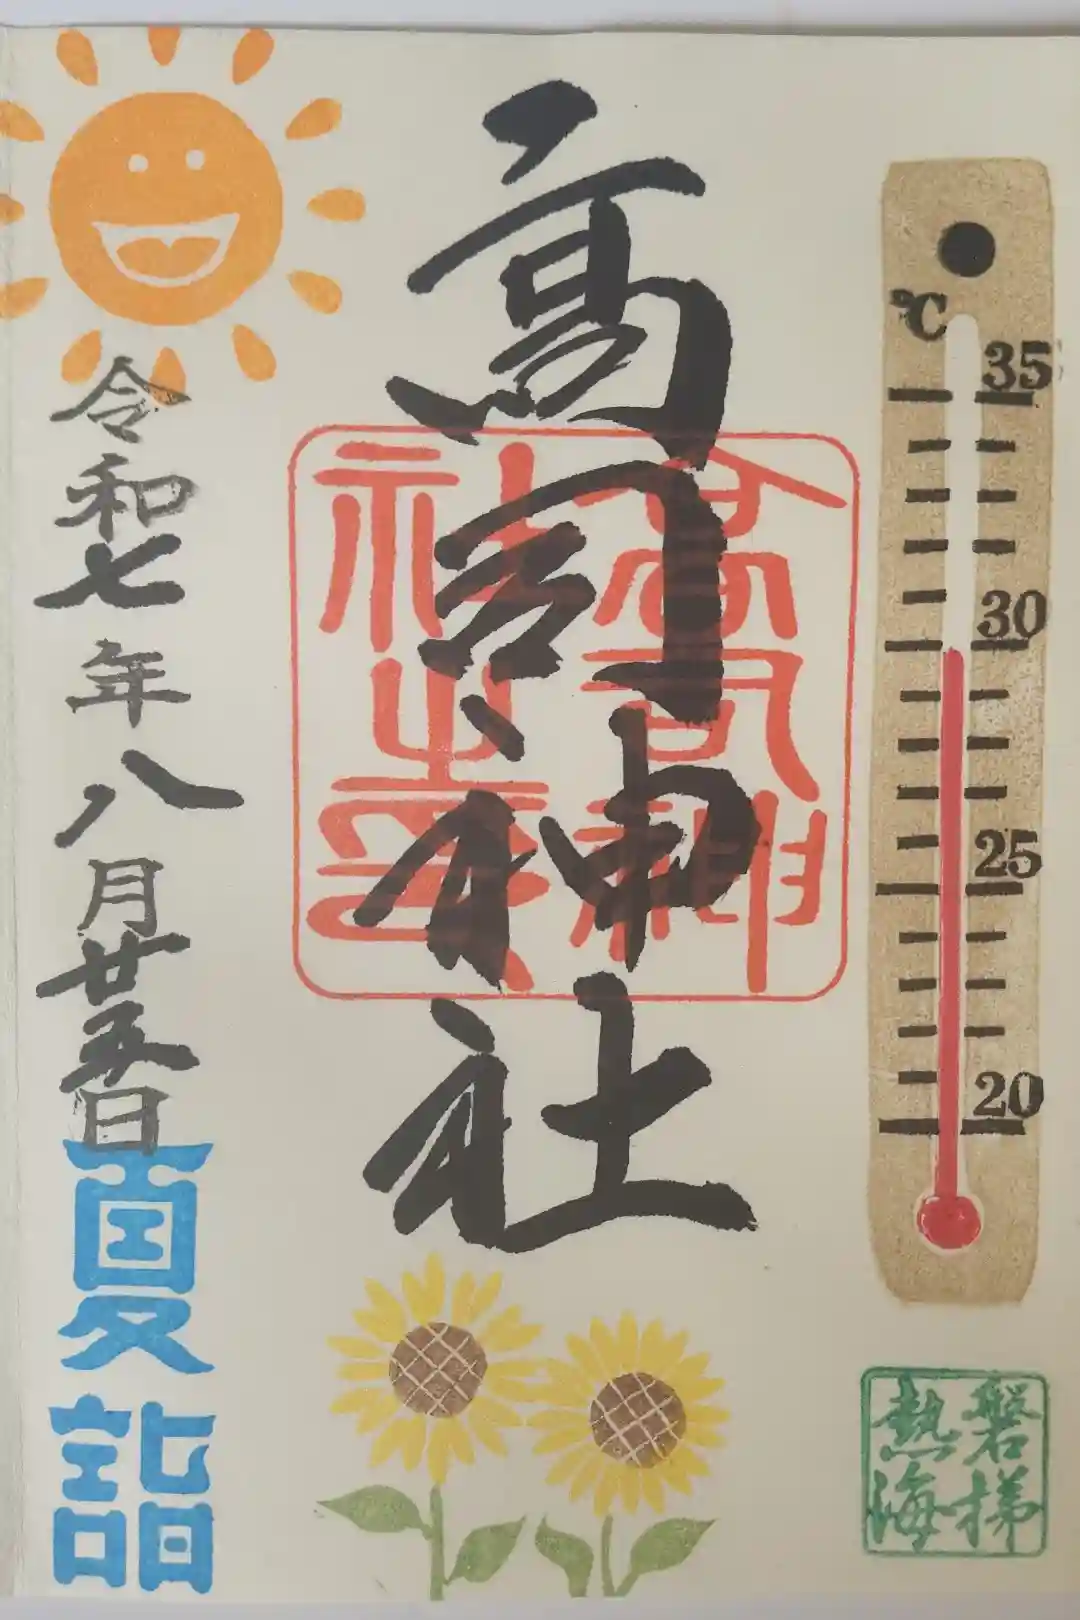 高司神社
高司神
社之印
令和七年八月廿五日
夏詣
℃
35
30
25
20
磐梯
熱海